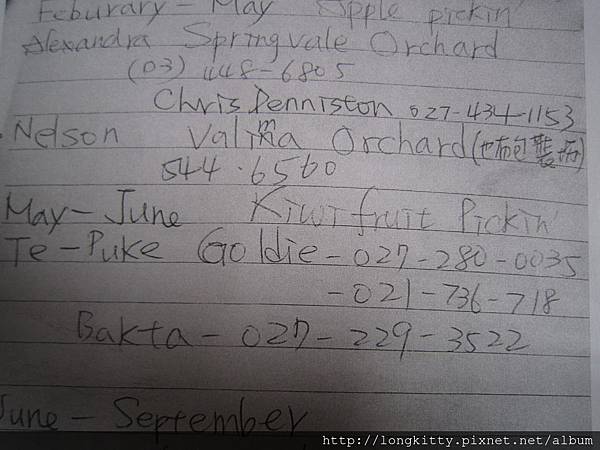 Feburary - May Apple pickin'
Alexandra Springvale Orchard
(03) 448-6805
Chris Denniston 027-434-1153
Nelson Valima Orchard(也有包裝
544.6560
May - June Kiwi fruit Pickin'
Te-Puke Goldie - 027-280-0035
- 021-736-718
Bakta - 027-229-3522
June - September
http://longkitty.pixnet.net/album